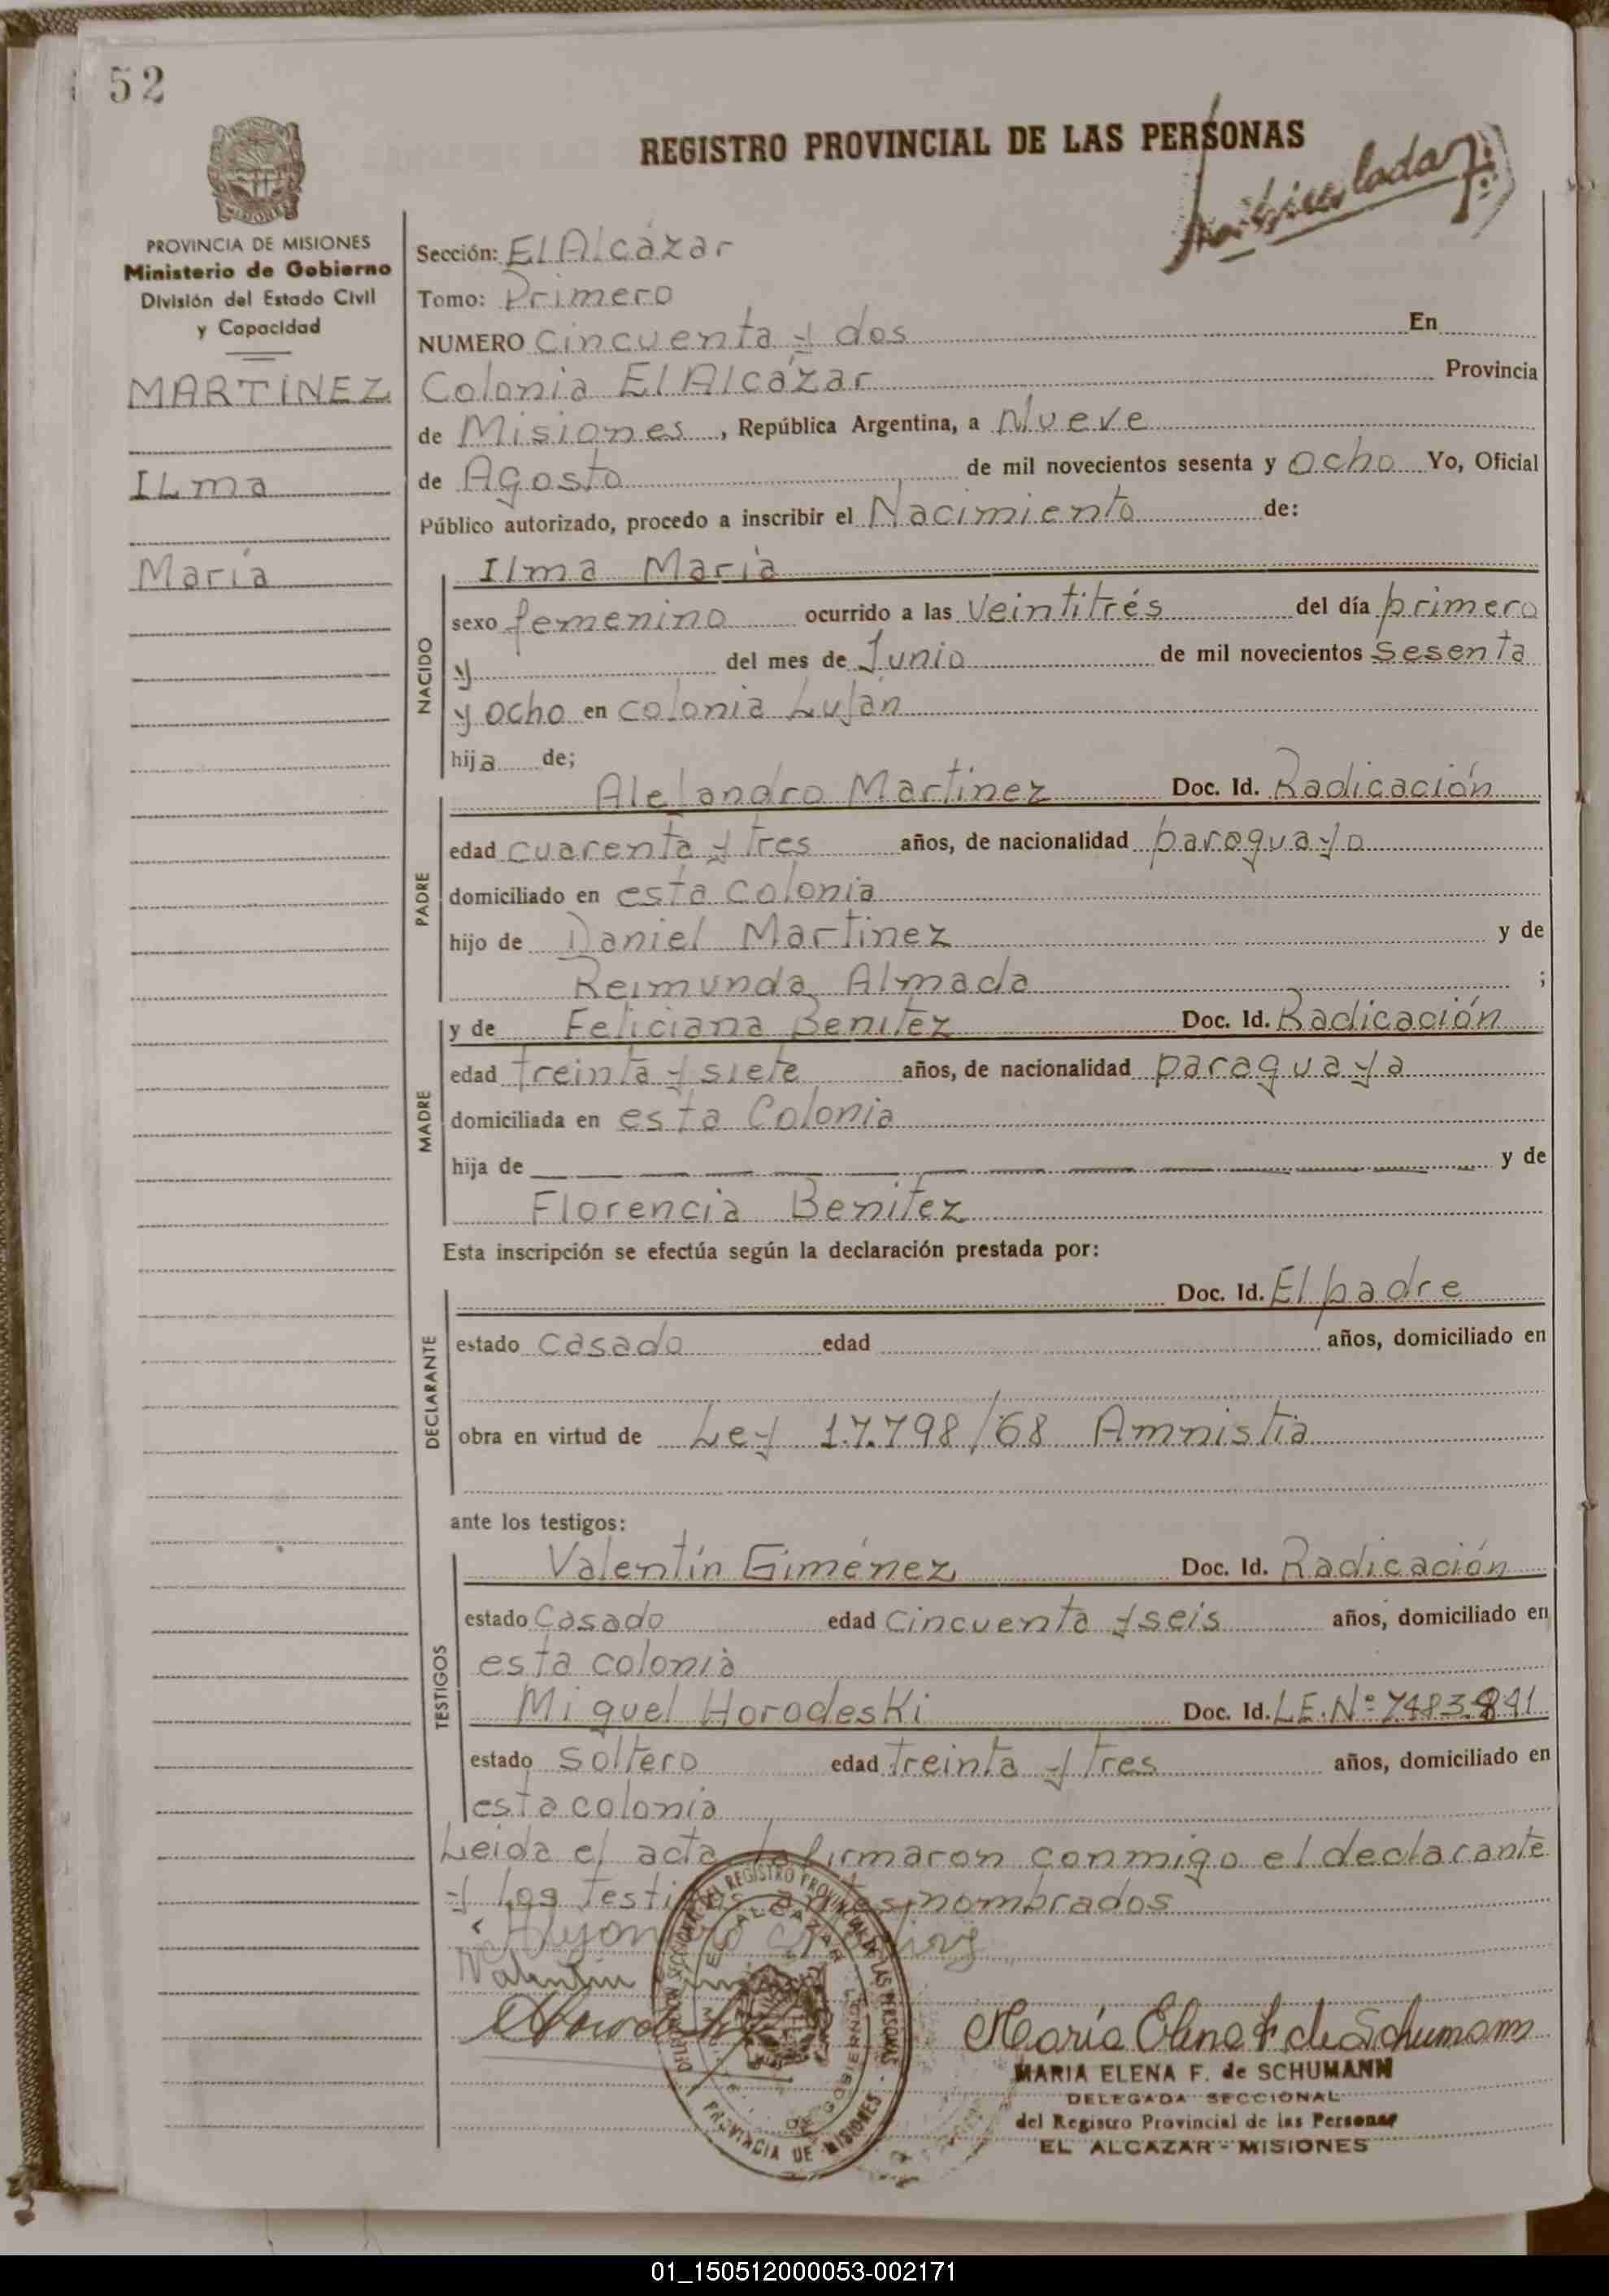 52
REGISTRO PROVINCIAL DE LAS PERSONAS
PROVINCIA DE MISIONES
Ministerio de Gobierno
División del Estado Civil
y Capacidad
MARTINEZ
ILma
María
Sección: El Alcázar
Tomo: Primero
NUMERO cincuenta y dos En
Colonia El Alcázar Provincia
de Misiones, República Argentina, a Nueve
de Agosto de mil novecientos sesenta y ocho Yo, Oficial
Público autorizado, procedo a inscribir el Nacimiento de:
NACIDO
Ilma María
sexo femenino ocurrido a las veintitrés del día primero
y del mes de Junio de mil novecientos sesenta
y ocho en colonia Luján
hija de;
PADRE
Alejandro Martinez Doc. Id. Radicación
edad cuarenta y tres años, de nacionalidad paraguayo
domiciliado en esta colonia
hijo de Daniel Martinez y de
Reimunda Almada ;
MADRE
y de Feliciana Benitez Doc. Id. Radicación
edad treinta y siete años, de nacionalidad paraguaya
domiciliada en esta Colonia
hija de — — — — — — — — y de
Florencia Benitez
Esta inscripción se efectúa según la declaración prestada por:
DECLARANTE
Doc. Id. El padre
estado casado edad años, domiciliado en
obra en virtud de Ley 17.798/68 Amnistia
ante los testigos:
TESTIGOS
Valentín Giménez Doc. Id. Radicación
estado Casado edad cincuenta y seis años, domiciliado en
esta colonia
Miguel Horodeski Doc. Id. LE. Nº 7483.841
estado soltero edad treinta y tres años, domiciliado en
esta colonia
Leida el acta la firmaron conmigo el declarante
y los testigos antes nombrados
Valentin
María Elena F de Schumann
MARIA ELENA F. de SCHUMANN
DELEGADA SECCIONAL
del Registro Provincial de las Personas
EL ALCAZAR - MISIONES
DEL REGISTRO PROVINCIAL DE LAS PERSONAS
EL ALCAZAR
PROVINCIA DE MISIONES
01_150512000053-002171